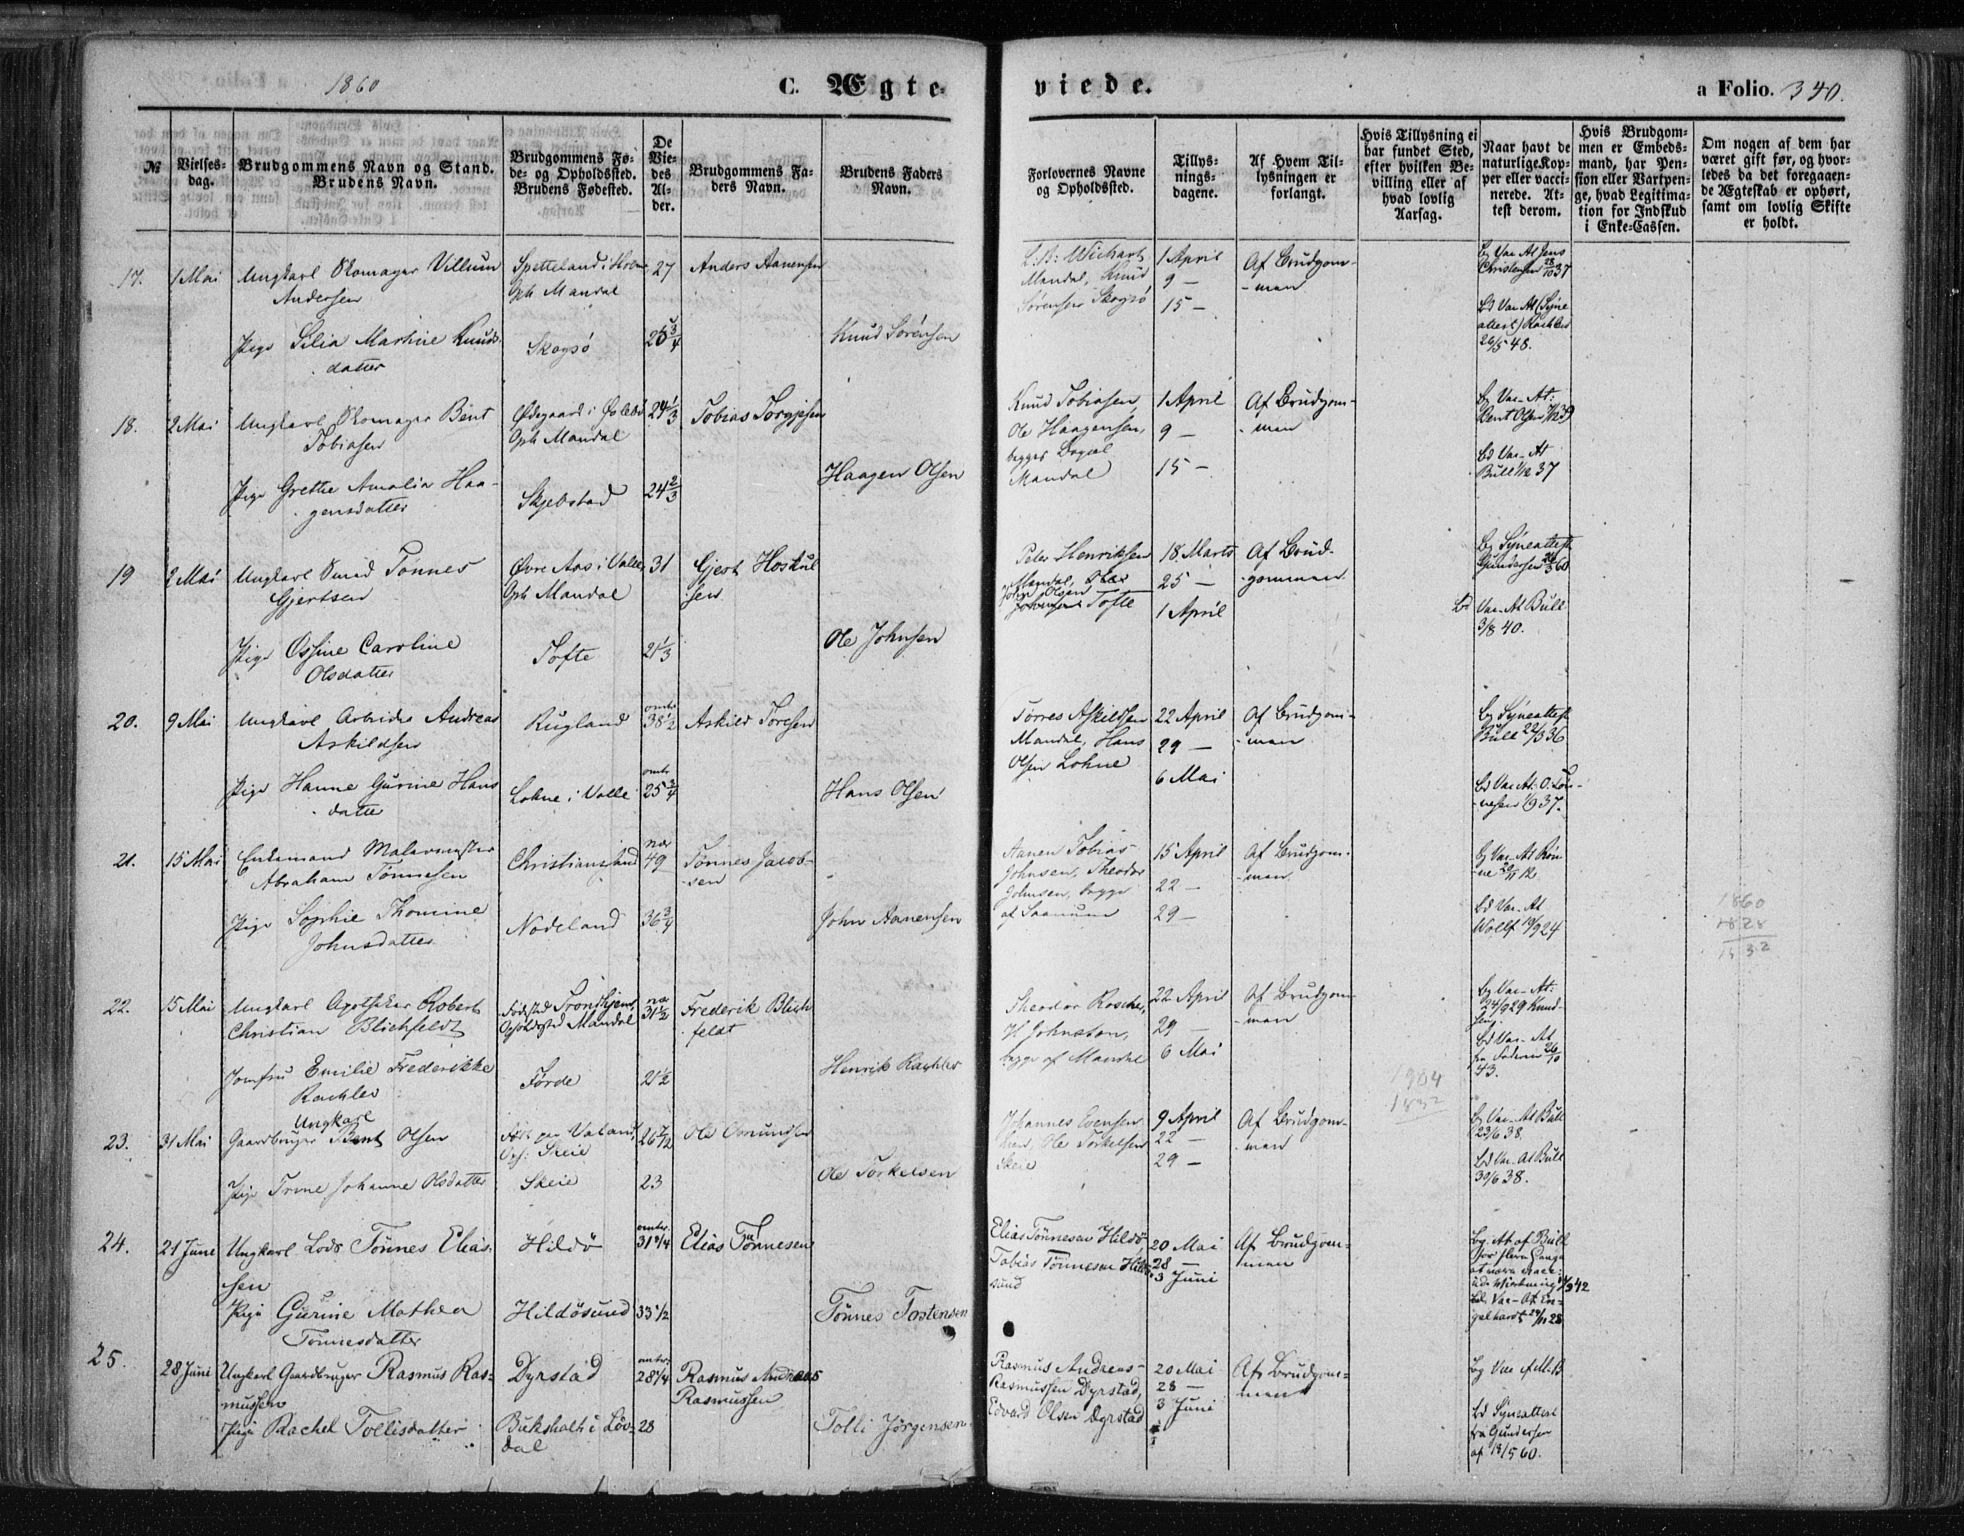 1860
C. Ægte-
viede.
a Folio. 340.
№
Vielses-
dag.
Brudgommens Navn og Stand.
Brudens Navn.
Brudgommens Fø-
de- og Opholdssted.
Brudens Fødested.
De
Vie-
des
Al-
der.
Brudgommens Fa-
ders Navn.
Brudens Faders
Navn.
Forlovernes Navne
og Opholdssted.
Tillys-
nings-
dagene.
Af Hvem Til-
lysningen er
forlangt.
Hvis Tillysning ei
har fundet Sted,
efter hvilken Be-
villing eller af
hvad lovlig
Aarsag.
Naar havt de
naturlige Kop-
per eller vacci-
nerede. At-
test derom.
Hvis Brudgom-
men er Embeds-
mand, har Pen-
sion eller Vartpen-
ge, hvad Legitima-
tion for Indskud
i Enke-Cassen.
Om nogen af dem har
været gift før, og hvor-
ledes da det foregaaen-
de Ægteskab er ophørt,
samt om lovlig Skifte
er holdt.
17. 1 Mai Ungkarl Skomager Villum
Andersen
Spetteland i Holm
Oph Mandal
27 Anders Aanensen
Mandal, Knud
Sørensen Skogsö
1 April
9 —
15 —
Af Brudgom-
-men
Bg Vac At Jens
Christensen 28/10 37
Pige Silia Martine Knuds-
datter
Skogsö 26 3/4 Knud Sörensen
26/5 48.
18. 2 Mai Ungkarl Skomager Bent
Tobiasen
Ødegaard i Øslebö
Oph Mandal
24 1/3 Tobias Torgjesen
Knud Tobiasen,
Ole Haagensen,
begges
Mandal
1 April
9 —
15 —
Af Brudgom-
-men
Bg Vac-At:
Bent Olsen
Pige Grethe Amalia Haa-
gensdatter
Skjebstad 24 2/3 Haagen Olsen
Bd Vac-At
Bull 1/12 37
19 2 Mai Ungkarl Smed Tønnes
Gjertsen
Øvre Aas i Valle
Oph Mandal
31 Gjert Hoskul
sen
Peter Henriksen
Mandal,
Tofte
18. Marts
25 —
1 April
Af Brud-
-gommen
Bg Syneattest
Gundersen 60
Pige Ossine Caroline
Olsdatter
Tofte 21 1/3 Ole Johnsen
Bd Vac-At Bull
3/8 40.
20. 9 Mai Ungkarl Arbeider Andreas
Askildsen
Rugland omtr 38 1/2 Askild Toresen
Torres Askildsen
Mandal, Hans
Olsen Lohne
22 April
29 —
6 Mai
Af Brudgom-
-men
Bg Syneattest
Bull 22/3 36
Pige Hanne Gurine Hans
datter
Lohne i Valle omtr 25 3/4 Hans Olsen
Bd Vac At: O. Tøn-
nesen 1/9 37.
21. 15 Mai Enkemand Malermester
Abraham Tønnesen
Christianssand nær 49 Tønnes Jacob-
-sen
Aanen Tobias
Johnsen, Theodor
Johnsen, begge
af Saanum
15 April
22 —
29 —
Af Brudgom-
-men
Bg Vac-At Rön
Pige Sophie Thomine
Johnsdatter
Nodeland 36 3/4 John Aanensen
Bd Vac-At
Wolff 19/9 24
1860
1828
32
22. 15 Mai Ungkarl Apotheker Robert
Christian Blichfeldt
Födested Trondhjem
Opholdssted Mandal
nær 31 1/2 Frederik Blich
feldt
Theodor Rosche,
H Johnston,
begge af Mandal
22 April
29 —
6 Mai
Af Brudgom-
-men
Bg Vac-At:
24/9 29 Knud-
sen
Jomfru Emilie Frederikke
Kachler
Førde 21 1/2 Henrik Kachler
Bd Vac-At
fra Faderen
43.
1904
1832
23. 31 Mai Gaardbruger Ungkarl Bent Olsen
Født paa Valand
Oph: Skeie
26 7/12 Ole Osmundsen
Johannes Evensen
Ole Torkelsen
Skeie
9 April
22 —
29 —
Af Brudgom-
-men
Bg Vac-At Bull
23/6 38.
Pige Trine Johanne Olsdatter Skeie 23 Ole Torkelsen
Bd Vac-At Bull
30/6 38.
24. 21 Juni Ungkarl Lods Tönnes Elias-
sen
Hildö omtr. 31 3/4 Elias Tönnesen
Elias Tönnesen Hildö
Tobias Tönnesen Hildö-
sund
20 Mai
28 —
3 Juni
Af Brudgom-
men
Bg. At af Bull
for flere Gange
at være vacc:
uden Virkning 42
Pige Gurine Mathea
Tönnesdatter
Hildösund 33 1/2 Tönnes Tostensen
Bd. Vac-At En-
gelhardt 28
25. 28 Juni Ungkarl Gaardbruger Rasmus Ras-
mussen
Dyrstad omtr. 28 1/4 Rasmus Andreas
Rasmussen
Rasmus Andreas-
Rasmussen Dyrstad,
Edvard Olsen Dyrstad
20 Mai
28 —
3 Juni
Af Brudgom-
men
Pige Rachel Tollisdatter Buksholt i Löv-
dal
28 Tolli Jörgensen
Bd Syneattest
fra Gundersen
af 18/5 60.